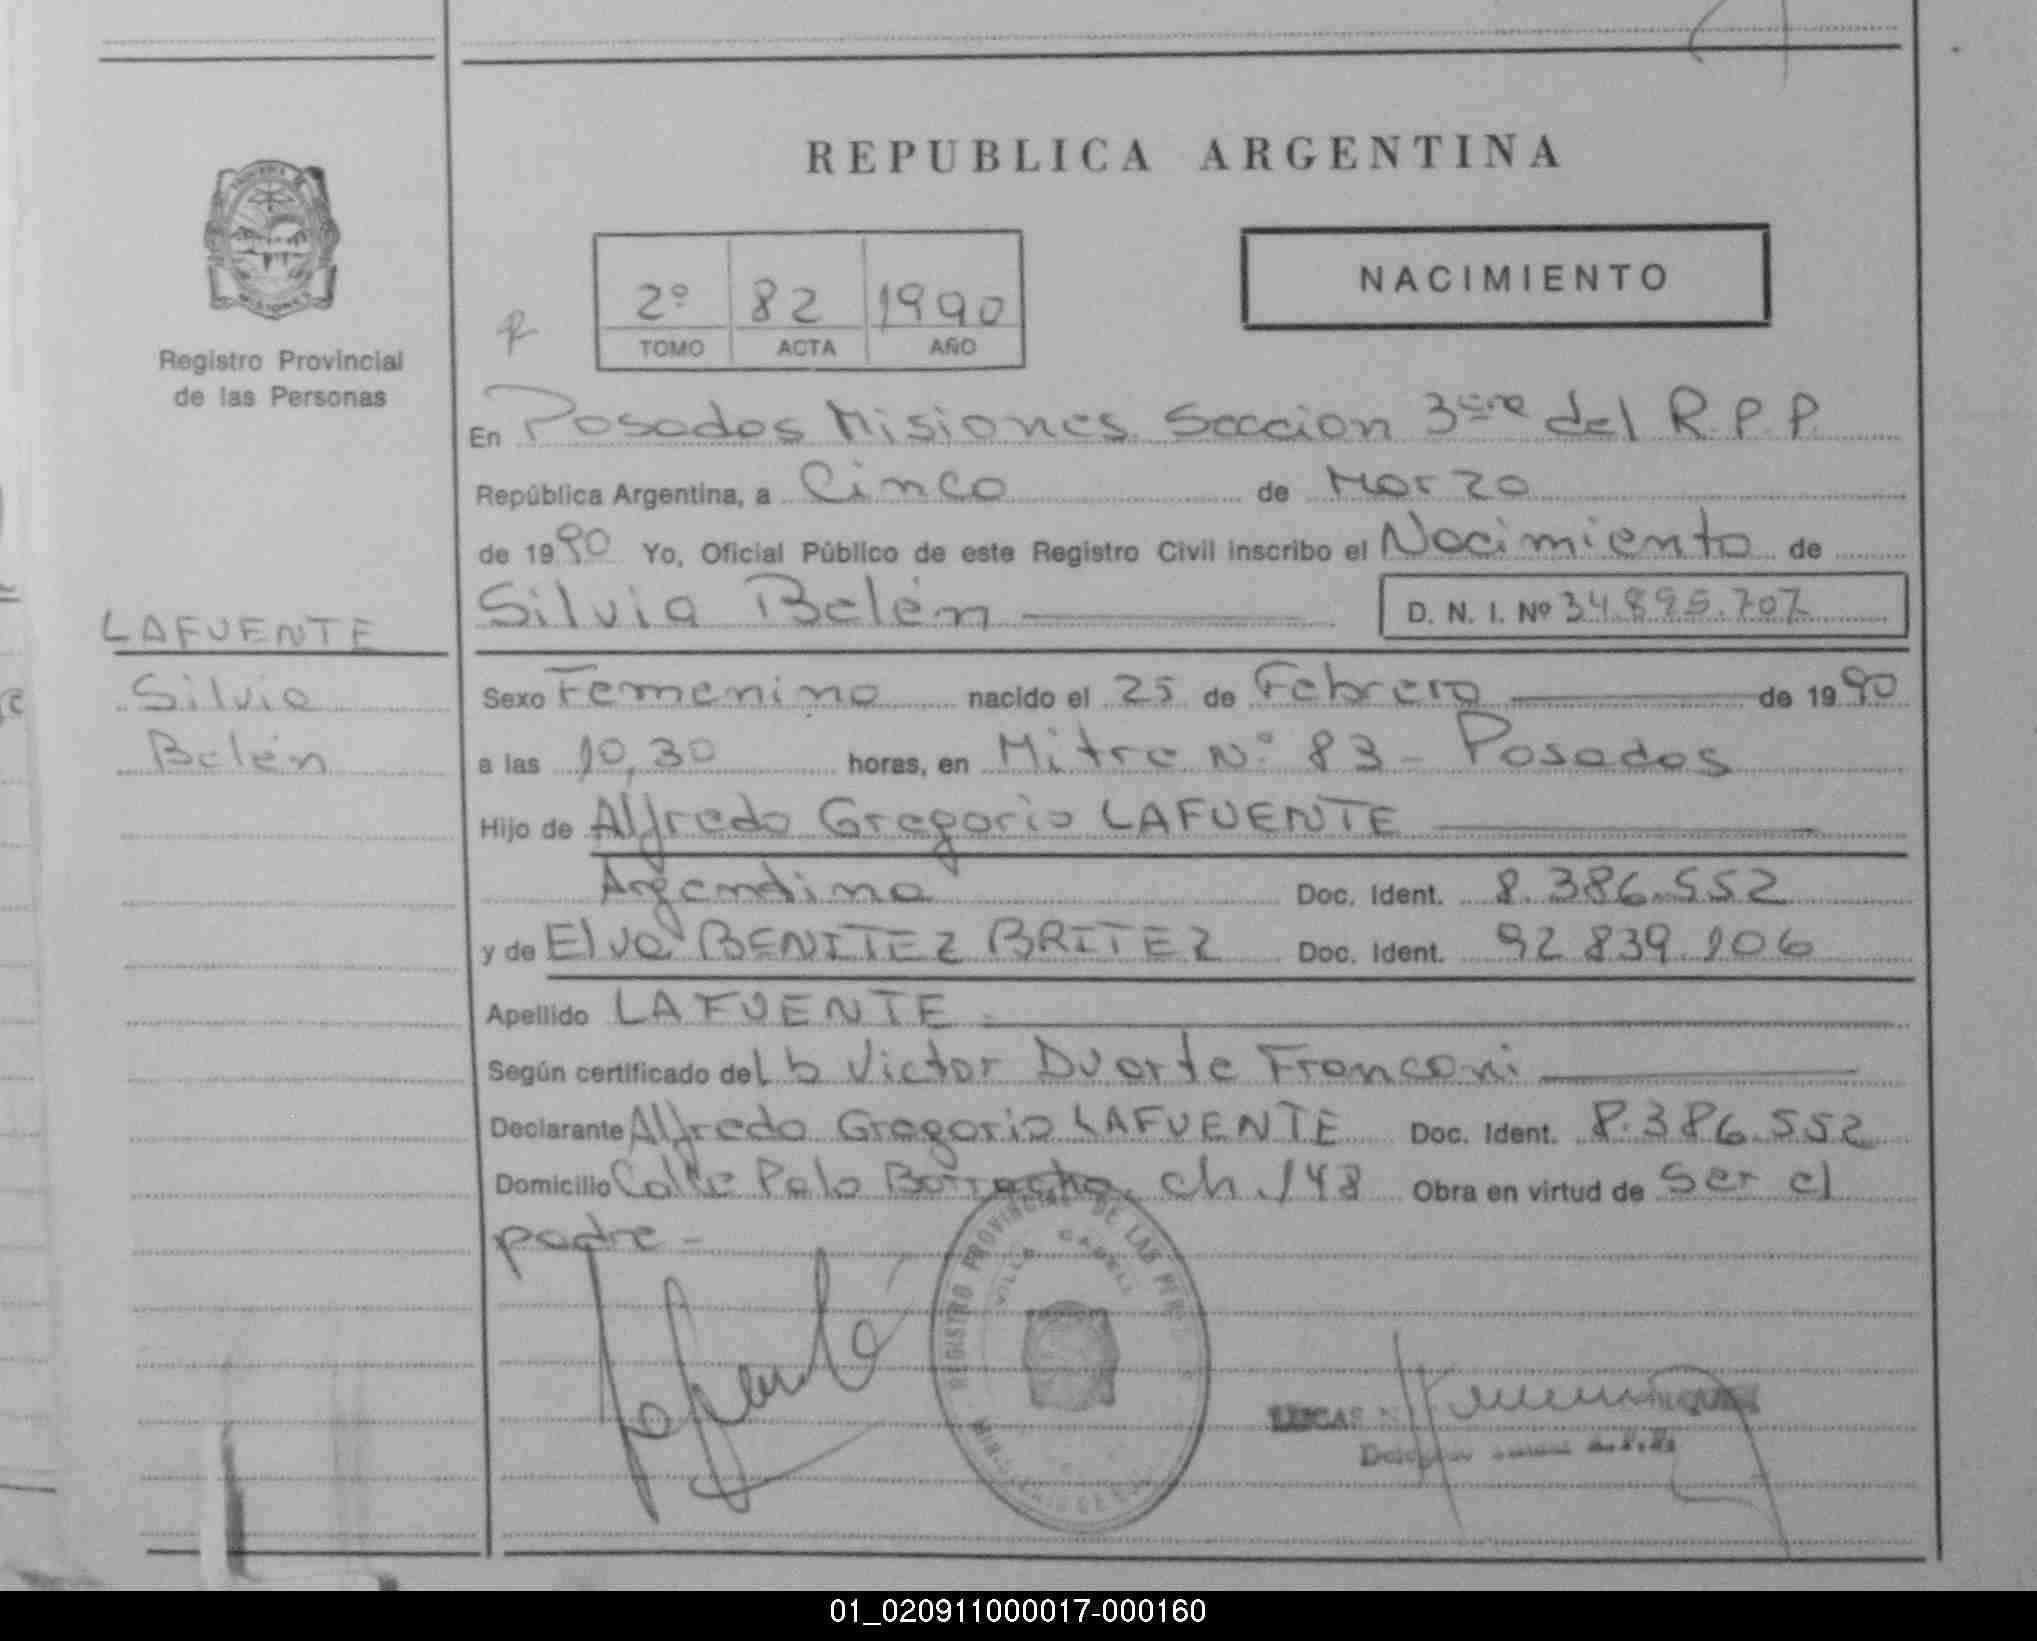 REPUBLICA ARGENTINA
NACIMIENTO
2º 82 1990
TOMO ACTA AÑO
Registro Provincial
de las Personas
En Posadas Misiones Seccion 3era del R.P.P.
República Argentina, a Cinco de Marzo
de 1990 Yo, Oficial Público de este Registro Civil inscribo el Nacimiento de
Silvia Belén D. N. I. Nº 34.895.707
LAFUENTE
Silvia
Belén
Sexo Femenino nacido el 25 de Febrero de 1990
a las 10,30 horas, en Mitre Nº 83 - Posadas
Hijo de Alfredo Gregorio LAFUENTE
Argentino Doc. Ident. 8.386.552
y de Elva BENITEZ BRITEZ Doc. Ident. 92.839.106
Apellido LAFUENTE
Según certificado del Victor Duarte Franconi
Declarante Alfredo Gregorio LAFUENTE Doc. Ident. 8.386.552
Domicilio Calle Palo Borracho, ch. 148 Obra en virtud de Ser el
padre -
REGISTRO PROVINCIAL DE LAS
VILLA CABELLO
LUCAS
01_020911000017-000160